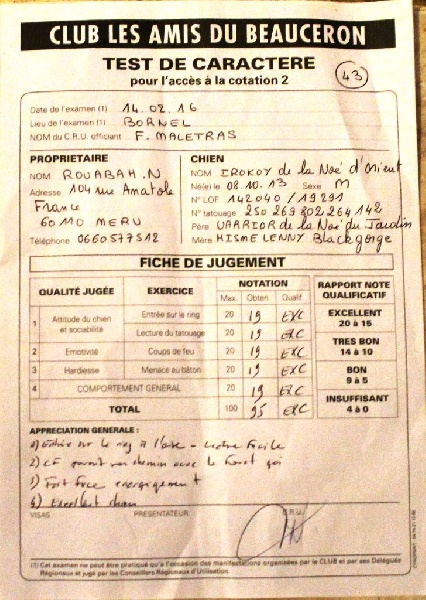 CLUB LES AMIS DU BEAUCERON
TEST DE CARACTERE
pour l'accès à la cotation 2
43
Date de l'examen (1) 14.02.16
Lieu de l'examen (1) BORNEL
NOM du C.R.U. officiant F. MALETRAS
PROPRIETAIRE
NOM ROUABAH.N
Adresse 104 rue Anatole
France
60110 MERU
Téléphone 0660577512
CHIEN
NOM IROKOY de la Noé d'Orient
Né(e) le 08.10.13 Sexe M
N° LOF 142040 / 19291
N° tatouage 250 269 802 264 142
Père UARRIOR de la Noé du Jardin
Mère HISME LENNY Blackgorge
FICHE DE JUGEMENT
QUALITÉ JUGÉE EXERCICE NOTATION
Max. Obten. Qualif.
1 Attitude du chien et sociabilité Entrée sur le ring 20 19 EXC
Lecture du tatouage 20 19 EXC
2 Emotivité Coups de feu 20 19 EXC
3 Hardiesse Menace au bâton 20 19 EXC
4 COMPORTEMENT GENERAL 20 19 EXC
TOTAL 100 95 EXC
RAPPORT NOTE
QUALIFICATIF
EXCELLENT
20 à 15
TRES BON
14 à 10
BON
9 à 5
INSUFFISANT
4 à 0
APPRECIATION GENERALE :
1) Entrée sur le ring à l'aise - Lecture Facile
2) CF
3) Fait face energiquement
4) Excellent chien
VISAS PRESENTATEUR C.R.U.
(1) Cet examen ne peut être pratiqué qu'à l'occasion des manifestations organisées par le CLUB et par ses Délégués
Régionaux et jugé par les Conseillers Régionaux d'Utilisation.